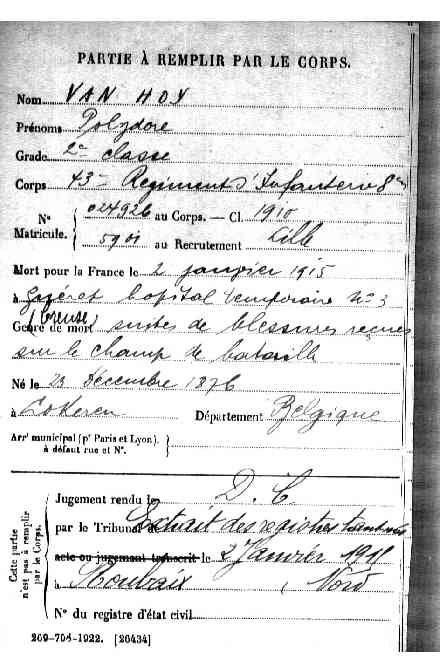 PARTIE À REMPLIR PAR LE CORPS.
Nom VAN HOY
Prénoms Polydore
Grade 2e classe
Corps 43me Régiment d'Infanterie 8e
N° Matricule. { 024926 au Corps. — Cl. 1910
5901 au Recrutement Lille
Mort pour la France le 2 janvier 1915
à Guéret hopital temporaire N° 3
(Creuse)
Genre de mort suites de blessures reçues
sur le champ de bataille
Né le 23 Décembre 1876
à Lokeren Département Belgique
Arrt municipal (pr Paris et Lyon).
à défaut rue et N°.
Cette partie n'est pas à remplir par le Corps.
Jugement rendu le D. C.
par le Tribunal de Extrait des registres
acte ou jugement transcrit le 2 Janvier
à Roubaix (Nord
N° du registre d'état civil
269-708-1922. [26434]